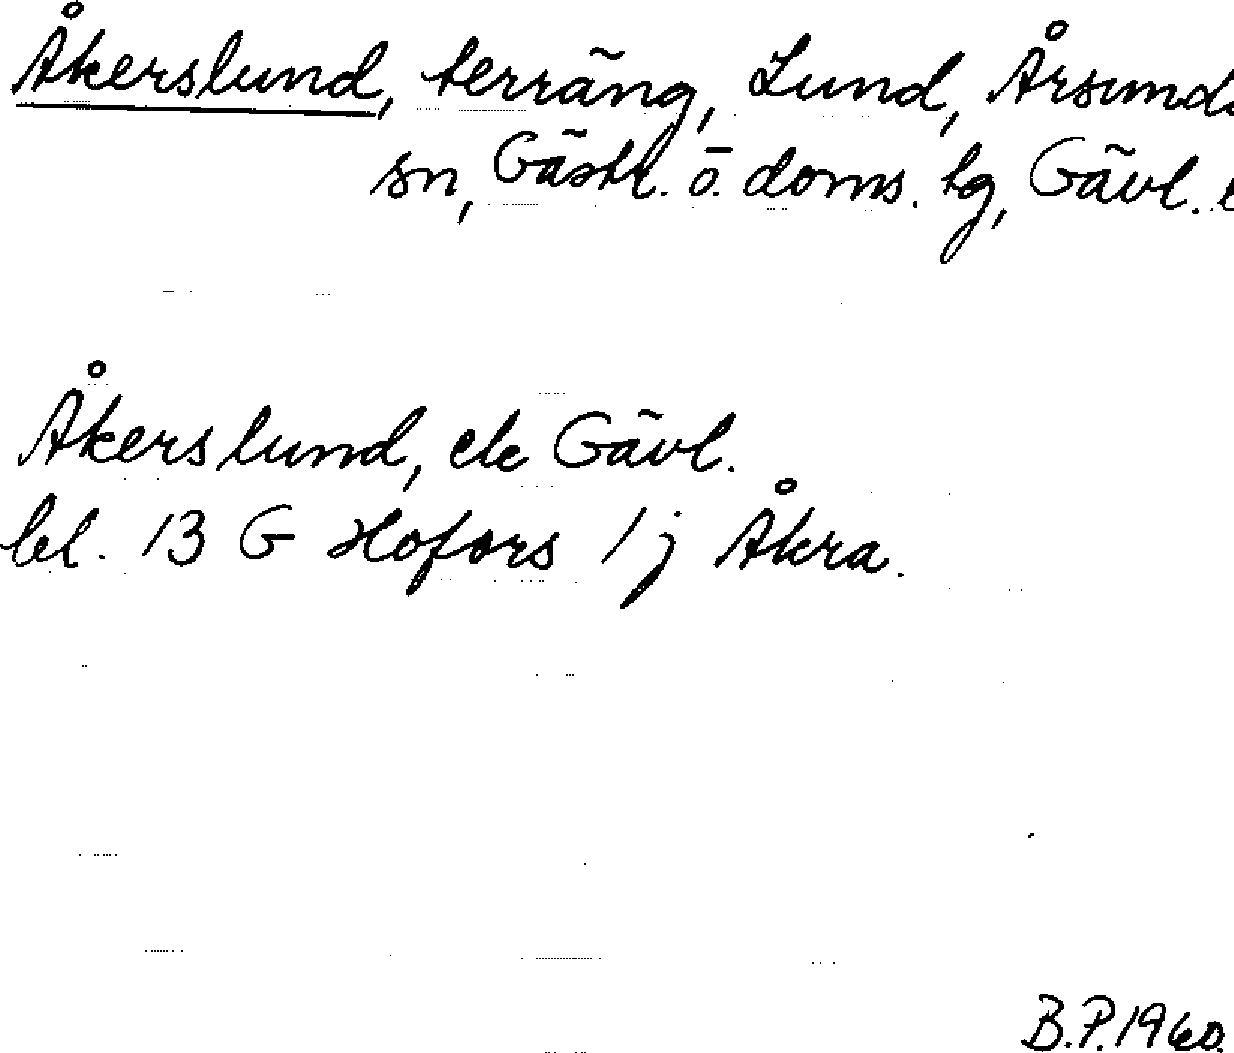 Åkerslund, terräng, Lund, Årsunda
sn, Gästr. ö. doms. tg, Gävl. l
Åkerslund, ek Gävl.
bl. 13 G Hofors 1j Åkra.
B.P. 1960.